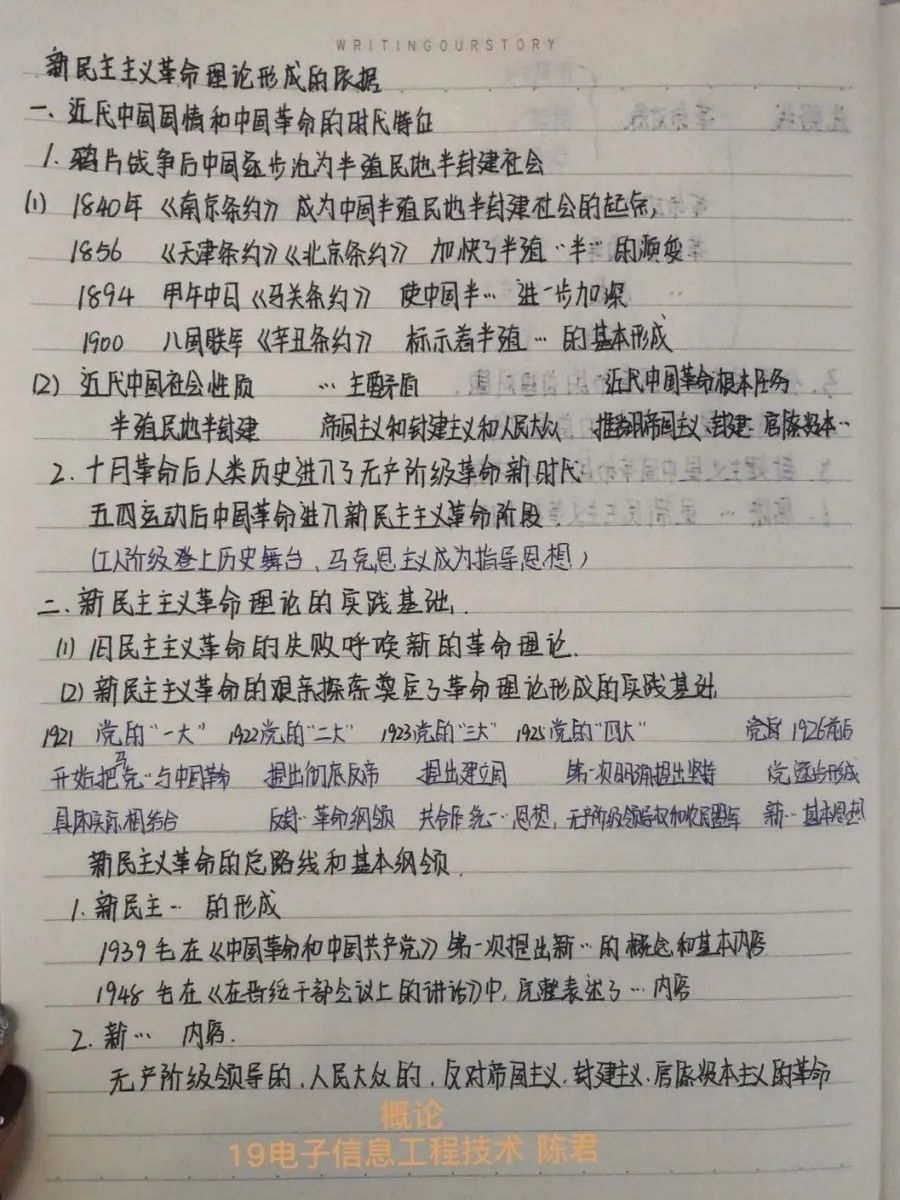 WRITINGOURSTORY
新民主主义革命理论形成的依据
一、近代中国国情和中国革命的时代特征
1. 鸦片战争后中国逐步沦为半殖民地半封建社会
(1) 1840年《南京条约》成为中国半殖民地半封建社会的起点,
1856 《天津条约》《北京条约》 加快了半殖…半…的演变
1894 甲午中日《马关条约》 使中国半… 进一步加深
1900 八国联军《辛丑条约》 标示着半殖…的基本形成
(2) 近代中国社会性质 …主要矛盾 近代中国革命根本任务
半殖民地半封建 帝国主义和封建主义和人民大众 推翻帝国主义、封建…官僚资本…
2. 十月革命后人类历史进入了无产阶级革命新时代
五四运动后中国革命进入新民主主义革命阶段
(工人阶级登上历史舞台、马克思主义成为指导思想)
二、新民主主义革命理论的实践基础.
(1) 旧民主主义革命的失败呼唤新的革命理论.
(2) 新民主主义革命的艰辛探索奠定了革命理论形成的实践基础
1921 党的"一大" 1922党的"二大" 1923党的"三大" 1925党的"四大" 1926前后
开始把马克…与中国革命 提出彻底反帝 提出建立国 第一次明确提出坚持 党逐步形成
具体实际相结合 反封…革命纲领 共合作统一…思想, 无产阶级领导权和农民同盟军 新…基本思想
新民主义革命的总路线和基本纲领.
1. 新民主… 的形成
1939 毛在《中国革命和中国共产党》第一次提出新…的概念和基本内容
1948 毛在《在晋绥干部会议上的讲话》中, 完整表达了…内容
2. 新… 内容.
无产阶级领导的、人民大众的、反对帝国主义、封建主义、官僚资本主义的革命
概论
19电子信息工程技术 陈君